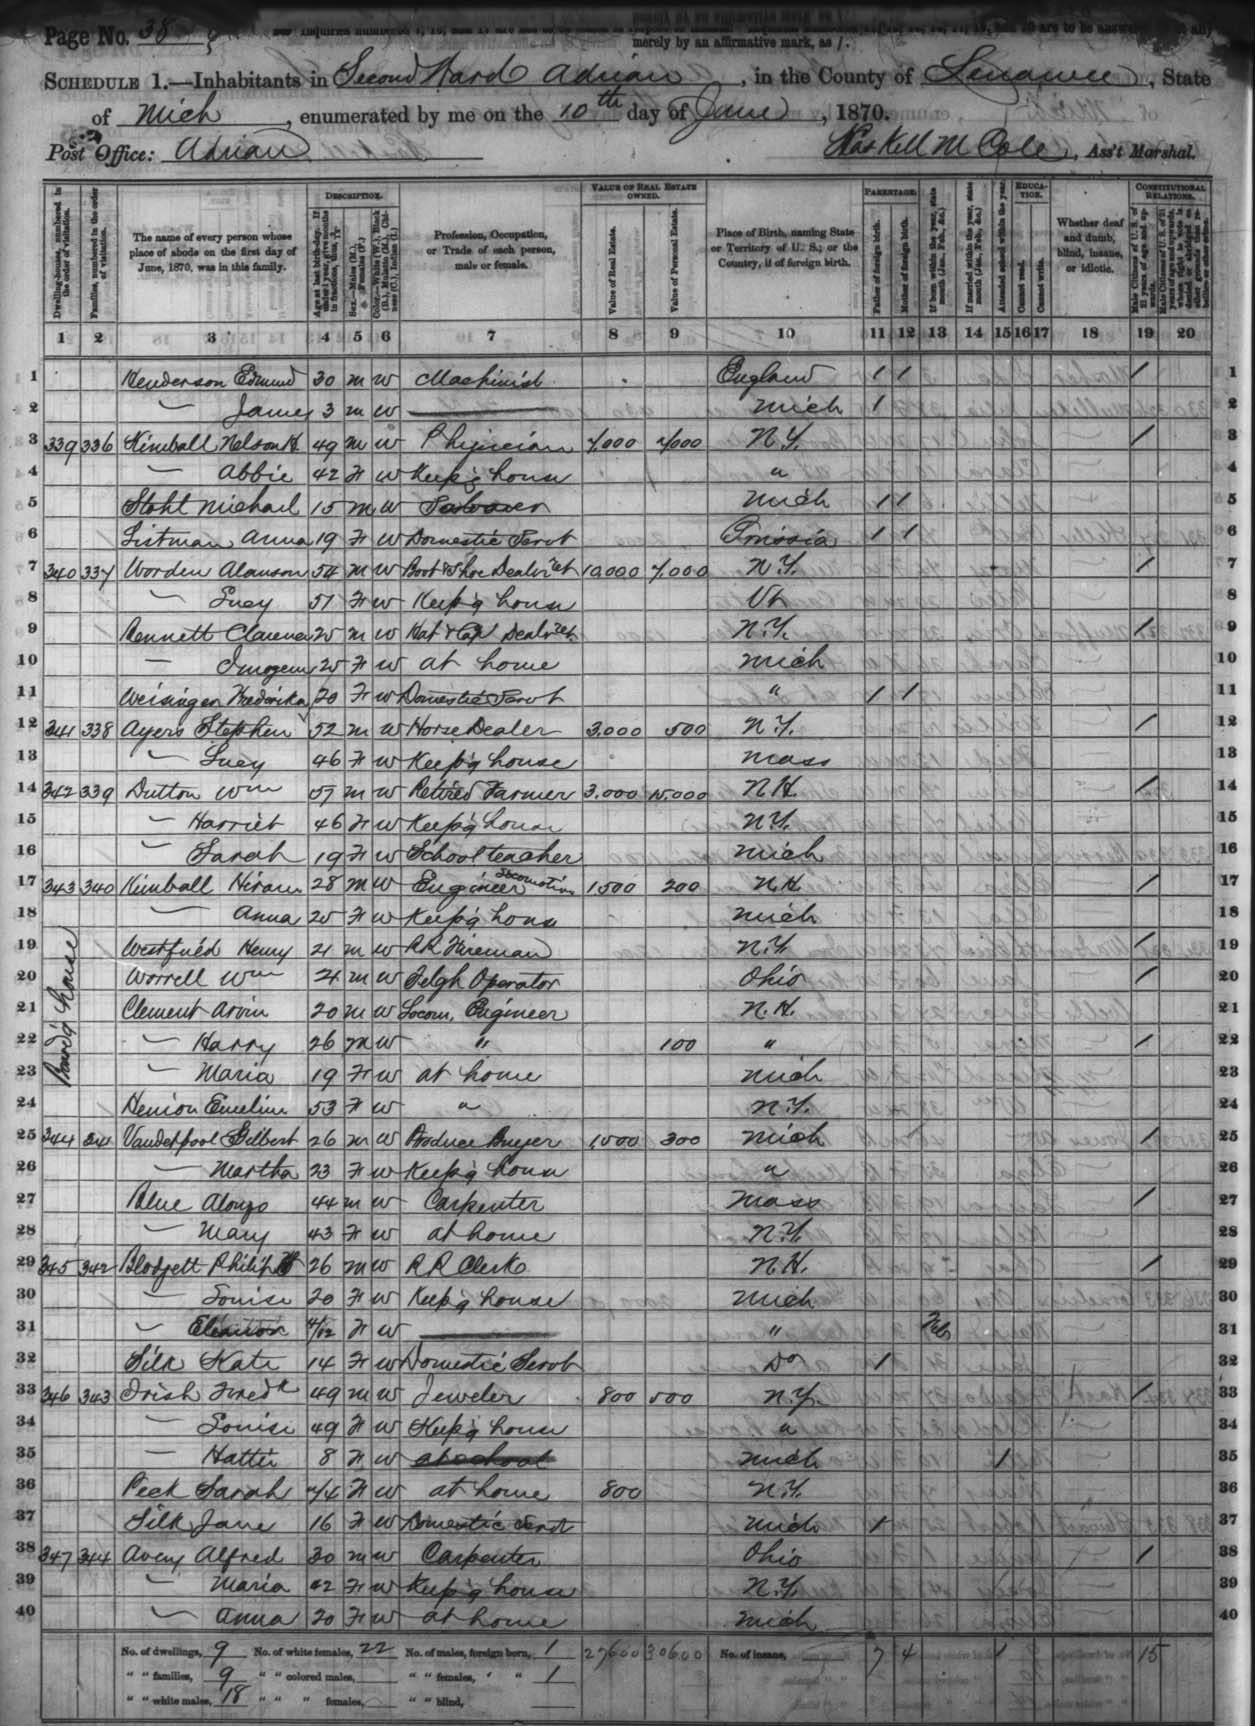 Page No. 38
merely by an affirmative mark, as /.
SCHEDULE 1.—Inhabitants in Second Ward Adrian, in the County of Lenawee, State
of Mich, enumerated by me on the 10th day of June, 1870.
Post Office: Adrian Haskell M Cole, Ass't Marshal.
Dwelling-houses, numbered in the order of visitation. Families, numbered in the order of visitation. The name of every person whose place of abode on the first day of June, 1870, was in this family. DESCRIPTION. Profession, Occupation, or Trade of each person, male or female. VALUE OF REAL ESTATE OWNED. Value of Real Estate. Value of Personal Estate. Place of Birth, naming State or Territory of U. S.; or the Country, if of foreign birth. PARENTAGE. Father of foreign birth. Mother of foreign birth. If born within the year, state month (Jan. Feb, &c.) If married within the year, state month (Jan. Feb, &c.) Attended school within the year. EDUCATION. Cannot read. Cannot write. Whether deaf and dumb, blind, insane, or idiotic. CONSTITUTIONAL RELATIONS.
1 2 3 4 5 6 7 8 9 10 11 12 13 14 15 16 17 18 19 20
1 Henderson Edmund 30 M W Machinist England / / / 1
2 — James 3 M W Mich / 2
3 339 336 Kimball Nelson H. 49 M W Physician 7,000 7,000 N.Y. / 3
4 — Abbie 42 F W Keep'g house " 4
5 Stohl Michael 15 M W Mich / / 5
6 Listman Anna 19 F W Domestic Servt Prussia / / 6
7 340 337 Worden Alanson 54 M W Boot & Shoe Dealr ret 10,000 7,000 N.Y. / 7
8 — Lucy 51 F W Keep'g house Vt 8
9 Bennett Clarence 25 M W Hat & Cap Dealr ret N.Y. / 9
10 — Imogene 25 F W at home Mich 10
11 Weisinger Frederika 20 F W Domestic Servt " / / 11
12 341 338 Ayers Stephen 52 M W Horse Dealer 3,000 500 N.Y. / 12
13 — Lucy 46 F W Keep'g house Mass 13
14 342 339 Dutton Wm 57 M W Retired Farmer 3,000 15,000 N.H. / 14
15 — Harriet 46 F W Keep'g house N.Y. 15
16 — Sarah 19 F W School teacher Mich 16
17 343 340 Kimball Hiram 28 M W Engineer Locomotive 1,500 200 N.H. / 17
18 — Anna 25 F W Keep'g house Mich 18
Board'g House
19 Westfield Henry 21 M W RR Fireman N.Y. / 19
20 Worrell Wm 24 M W Telgh Operator Ohio / 20
21 Clement Arvin 20 M W Locom. Engineer N.H. 21
22 — Harry 26 M W " 100 " / 22
23 — Maria 19 F W at home Mich 23
24 Henion Emeline 53 F W " N.Y. 24
25 344 341 Vanderpool Gilbert 26 M W Produce Buyer 1,500 300 Mich / 25
26 — Martha 23 F W Keep'g house " 26
27 Blue Alonzo 44 M W Carpenter Mass / 27
28 — Mary 43 F W at home N.Y. 28
29 345 342 Blodgett Philip 26 M W RR Clerk N.H. / 29
30 — Louise 20 F W Keep'g house Mich 30
31 — Eleanor 4/12 F W " Feb 31
32 Silk Kate 14 F W Domestic Servt Do / 32
33 346 343 Irish Fredk 49 M W Jeweler 800 500 N.Y. / 33
34 — Louise 49 F W Keep'g house " 34
35 — Hattie 8 F W at school Mich / 35
36 Peck Sarah 74 F W at home 800 N.Y. 36
37 Silk Jane 16 F W Domestic Servt Mich / 37
38 347 344 Avery Alfred 30 M W Carpenter Ohio / 38
39 — Maria 42 F W Keep'g house N.Y. 39
40 — Anna 20 F W at home Mich 40
No. of dwellings, 9 No. of white females, 22 No. of males, foreign born, 1 27600 30600 No. of insane, 7 4 1 15
" " families, 9 " " colored males, " " females, " " 1
" " white males, 18 " " " females, " " blind,